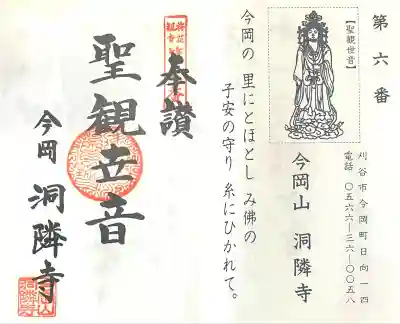 第六番
【聖観世音】
今岡の 里にとほとし み佛の
子安の守り 糸にひかれて。
今岡山 洞隣寺
刈谷市今岡町日向一四
電話 〇五六六―三六―〇〇五八
奉讃
聖観世音
今岡 洞隣寺